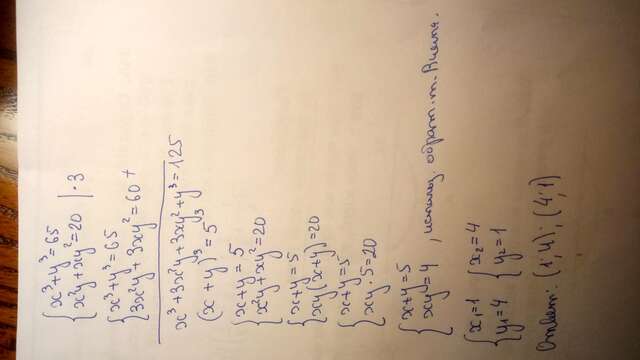 x³+y³=65
x²y+xy²=20 | ·3
x³+y³=65
3x²y+3xy²=60 +
x³+3x²y+3xy²+y³=125
(x+y)³=5³
x+y=5
x²y+xy²=20
x+y=5
xy(x+y)=20
x+y=5
xy·5=20
x+y=5
xy=4 , использ. обрат. т. Виета.
x₁=1 x₂=4
y₁=4 y₂=1
Ответ: (1;4); (4;1)